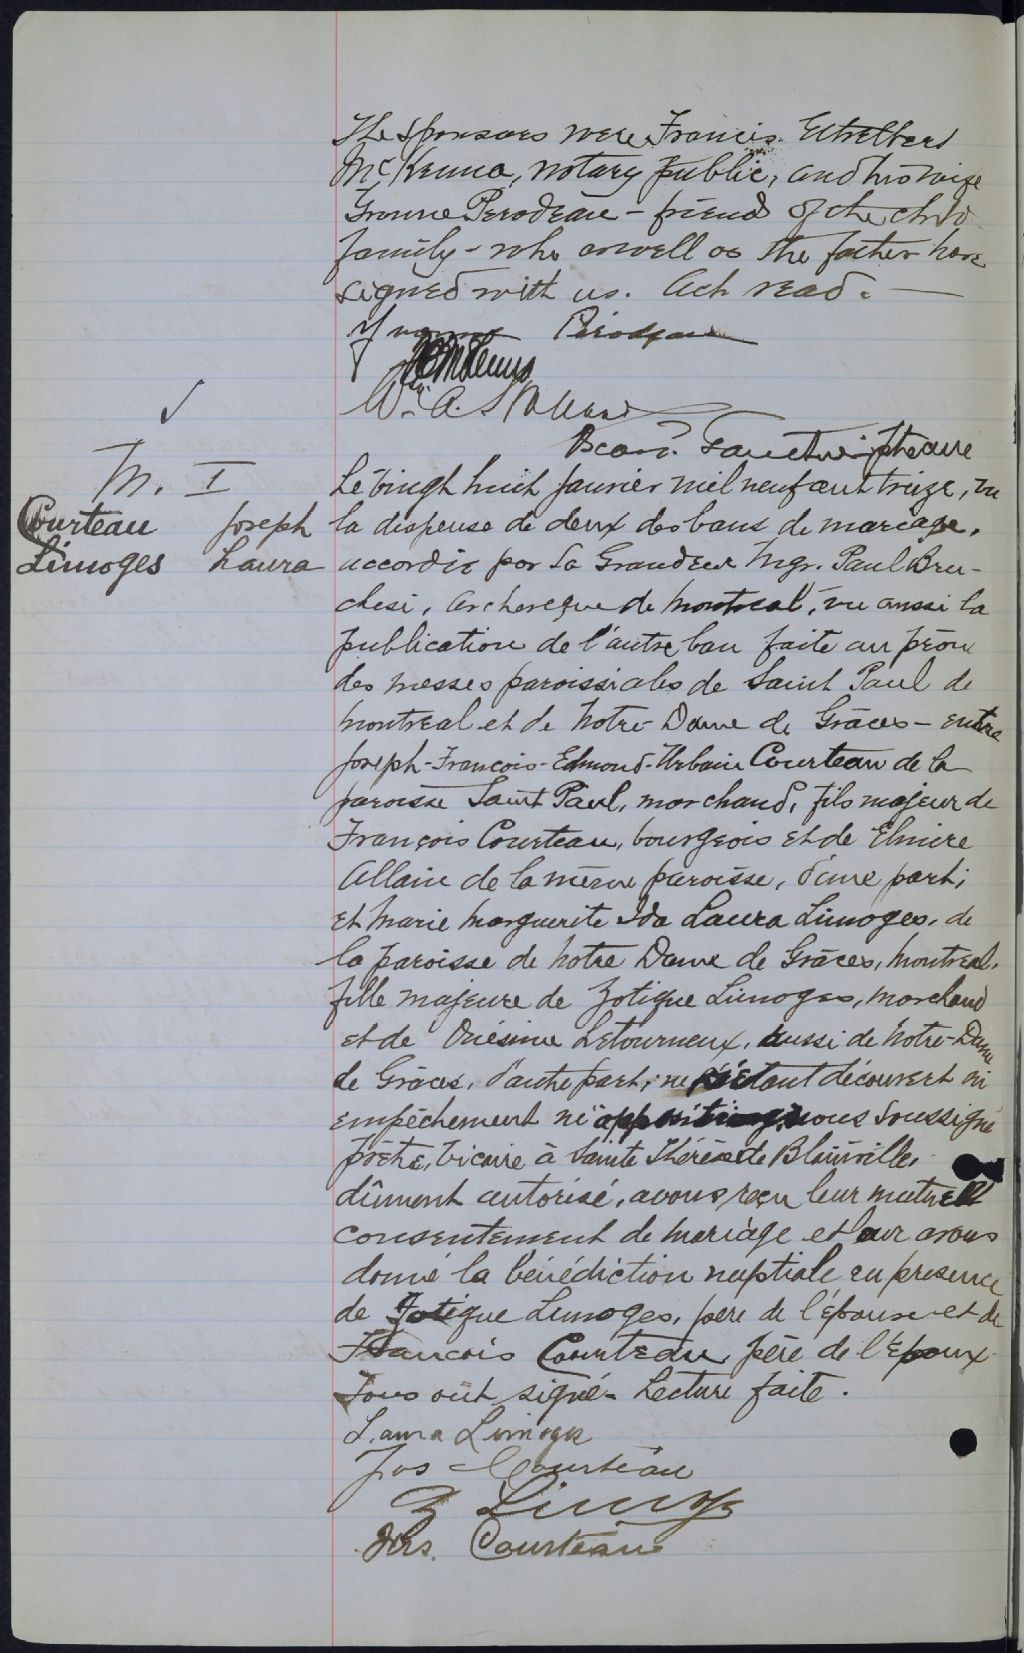 The Sponsors were Francis Ethelbert
McKenna, notary public, and his wife
Yvonne Perodeau - friends of the child
family - who as well as the father have
signed with us. Act read. —
Yvonne Perodeau
W. A.
M. I
Le vingt huit janvier mil neuf cent treize, vu
Courteau Joseph
la dispense de deux des bans de mariage,
Limoges Laura
accordée par Sa Grandeur Mgr. Paul Bru-
chesi, Archevêque de Montreal, vu aussi la
publication de l'autre ban faite au prône
des messes paroissiales de Saint Paul de
Montreal et de Notre-Dame de Grâces - entre
Joseph-François-Edmond-Urbain Courteau de la
paroisse Saint Paul, marchand, fils majeur de
François Courteau, bourgeois et de Elmire
Allain de la même paroisse, d'une part;
et Marie Marguerite Ida Laura Limoges, de
la paroisse de Notre Dame de Grâces, Montreal,
fille majeure de Zotique Limoges, marchand
et de Onésime Letourneux, aussi de Notre-Dame
de Grâces, d'autre part; ne s'étant découvert ni
empêchement ni opposition, nous soussigné
prêtre, vicaire à Sainte Thérèse de Blainville,
dûment autorisé, avons reçu leur mutuel
consentement de mariage et leur avons
donné la bénédiction nuptiale en presence
de Zotique Limoges, père de l'épouse et de
François Courteau, père de l'Epoux.
Tous ont signé. Lecture faite.
Laura Limoges
Jos Courteau
Z Limoges
Frs. Courteau